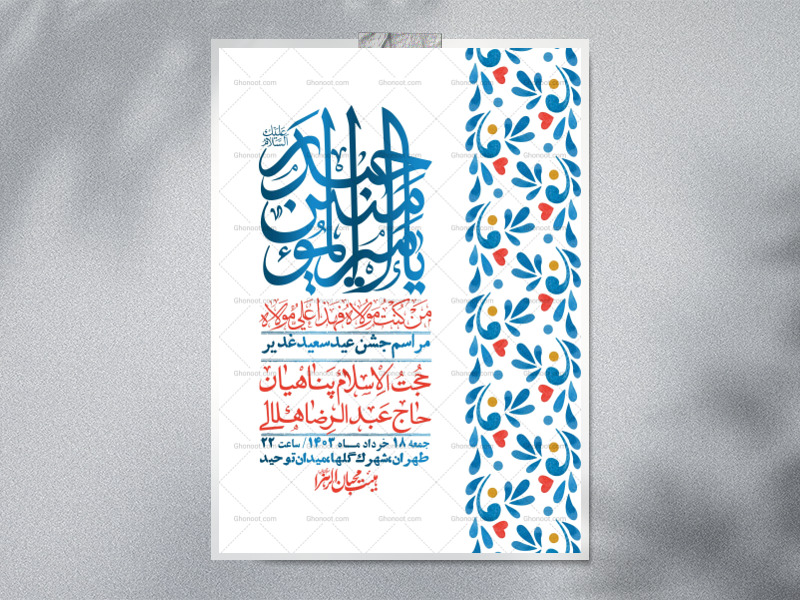 علیک السلام
یا امیرالمؤمنین حیدر
من کنت مولاه فهذا علی مولاه
مراسم جشن عید سعید غدیر
حجت الاسلام پناهیان
حاج عبدالرضا هلالی
جمعه ۱۸ خرداد ماه ۱۴۰۳ / ساعت ۲۲
طهران، شهرک گلها، میدان توحید
هیئت محبان الزهرا
Ghonoot.com